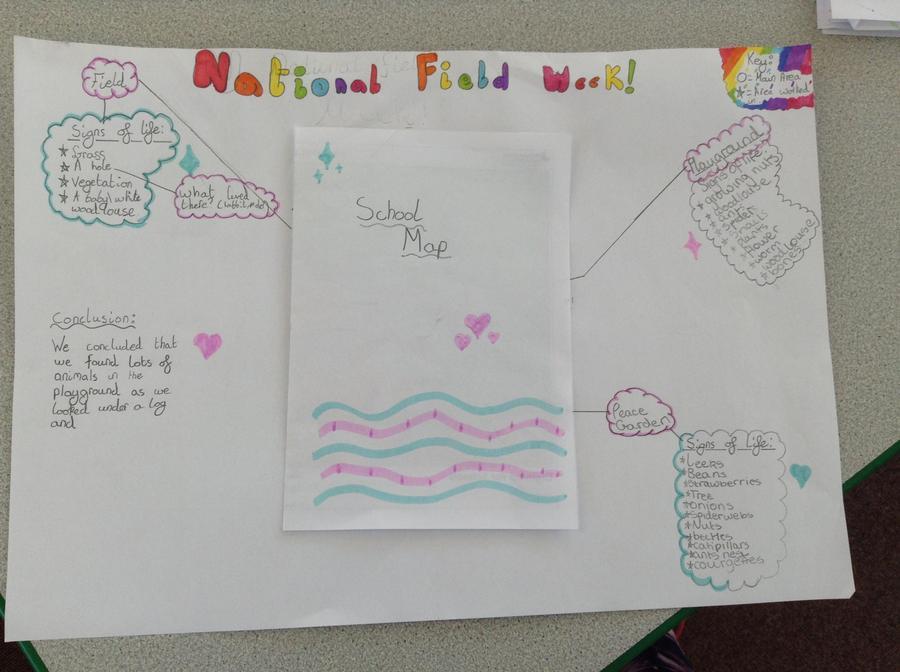 National Field Week!
Key:
O= Main Area
★= Area worked
in
Field
Signs of life:
★ Grass
★ A hole
★ Vegetation
★ A baby white
woodlouse
What lived
there?
School
Map
Playground
Signs of life:
* growing nuts
* ant
* spider
* snails
* plants
* flower
* worm
* woodlouse
* bones
Conclusion:
We concluded that
we found lots of
animals in the
playground as we
looked under a log
and
Peace
Garden
Signs of Life:
* Leeks
* Beans
* Strawberries
* Tree
* onions
* Spiderwebs
* Nuts
* beetles
* catipillars
* ants nest
* courgettes